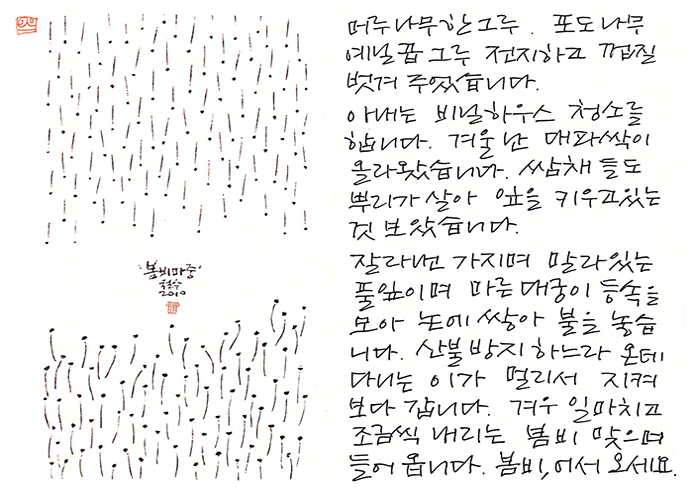 '봄비마중'
철수
2010
머루나무 한 그루. 포도나무
예닐곱 그루 전지하고 껍질
벗겨 주었습니다.
아내는 비닐하우스 청소를
합니다. 겨울 난 대파싹이
올라왔습니다. 쌈채 들도
뿌리가 살아 잎을 키우고 있는
것 보았습니다.
잘라낸 가지며 말라있는
풀잎이며 마른 대궁이 등속을
모아 논에 쌓아 불을 놓습
니다. 산불방지 하느라 온데
다니는 이가 멀리서 지켜
보다 갑니다. 겨우 일 마치고
조금씩 내리는 봄비 맞으며
들어 옵니다. 봄비, 어서 오세요.